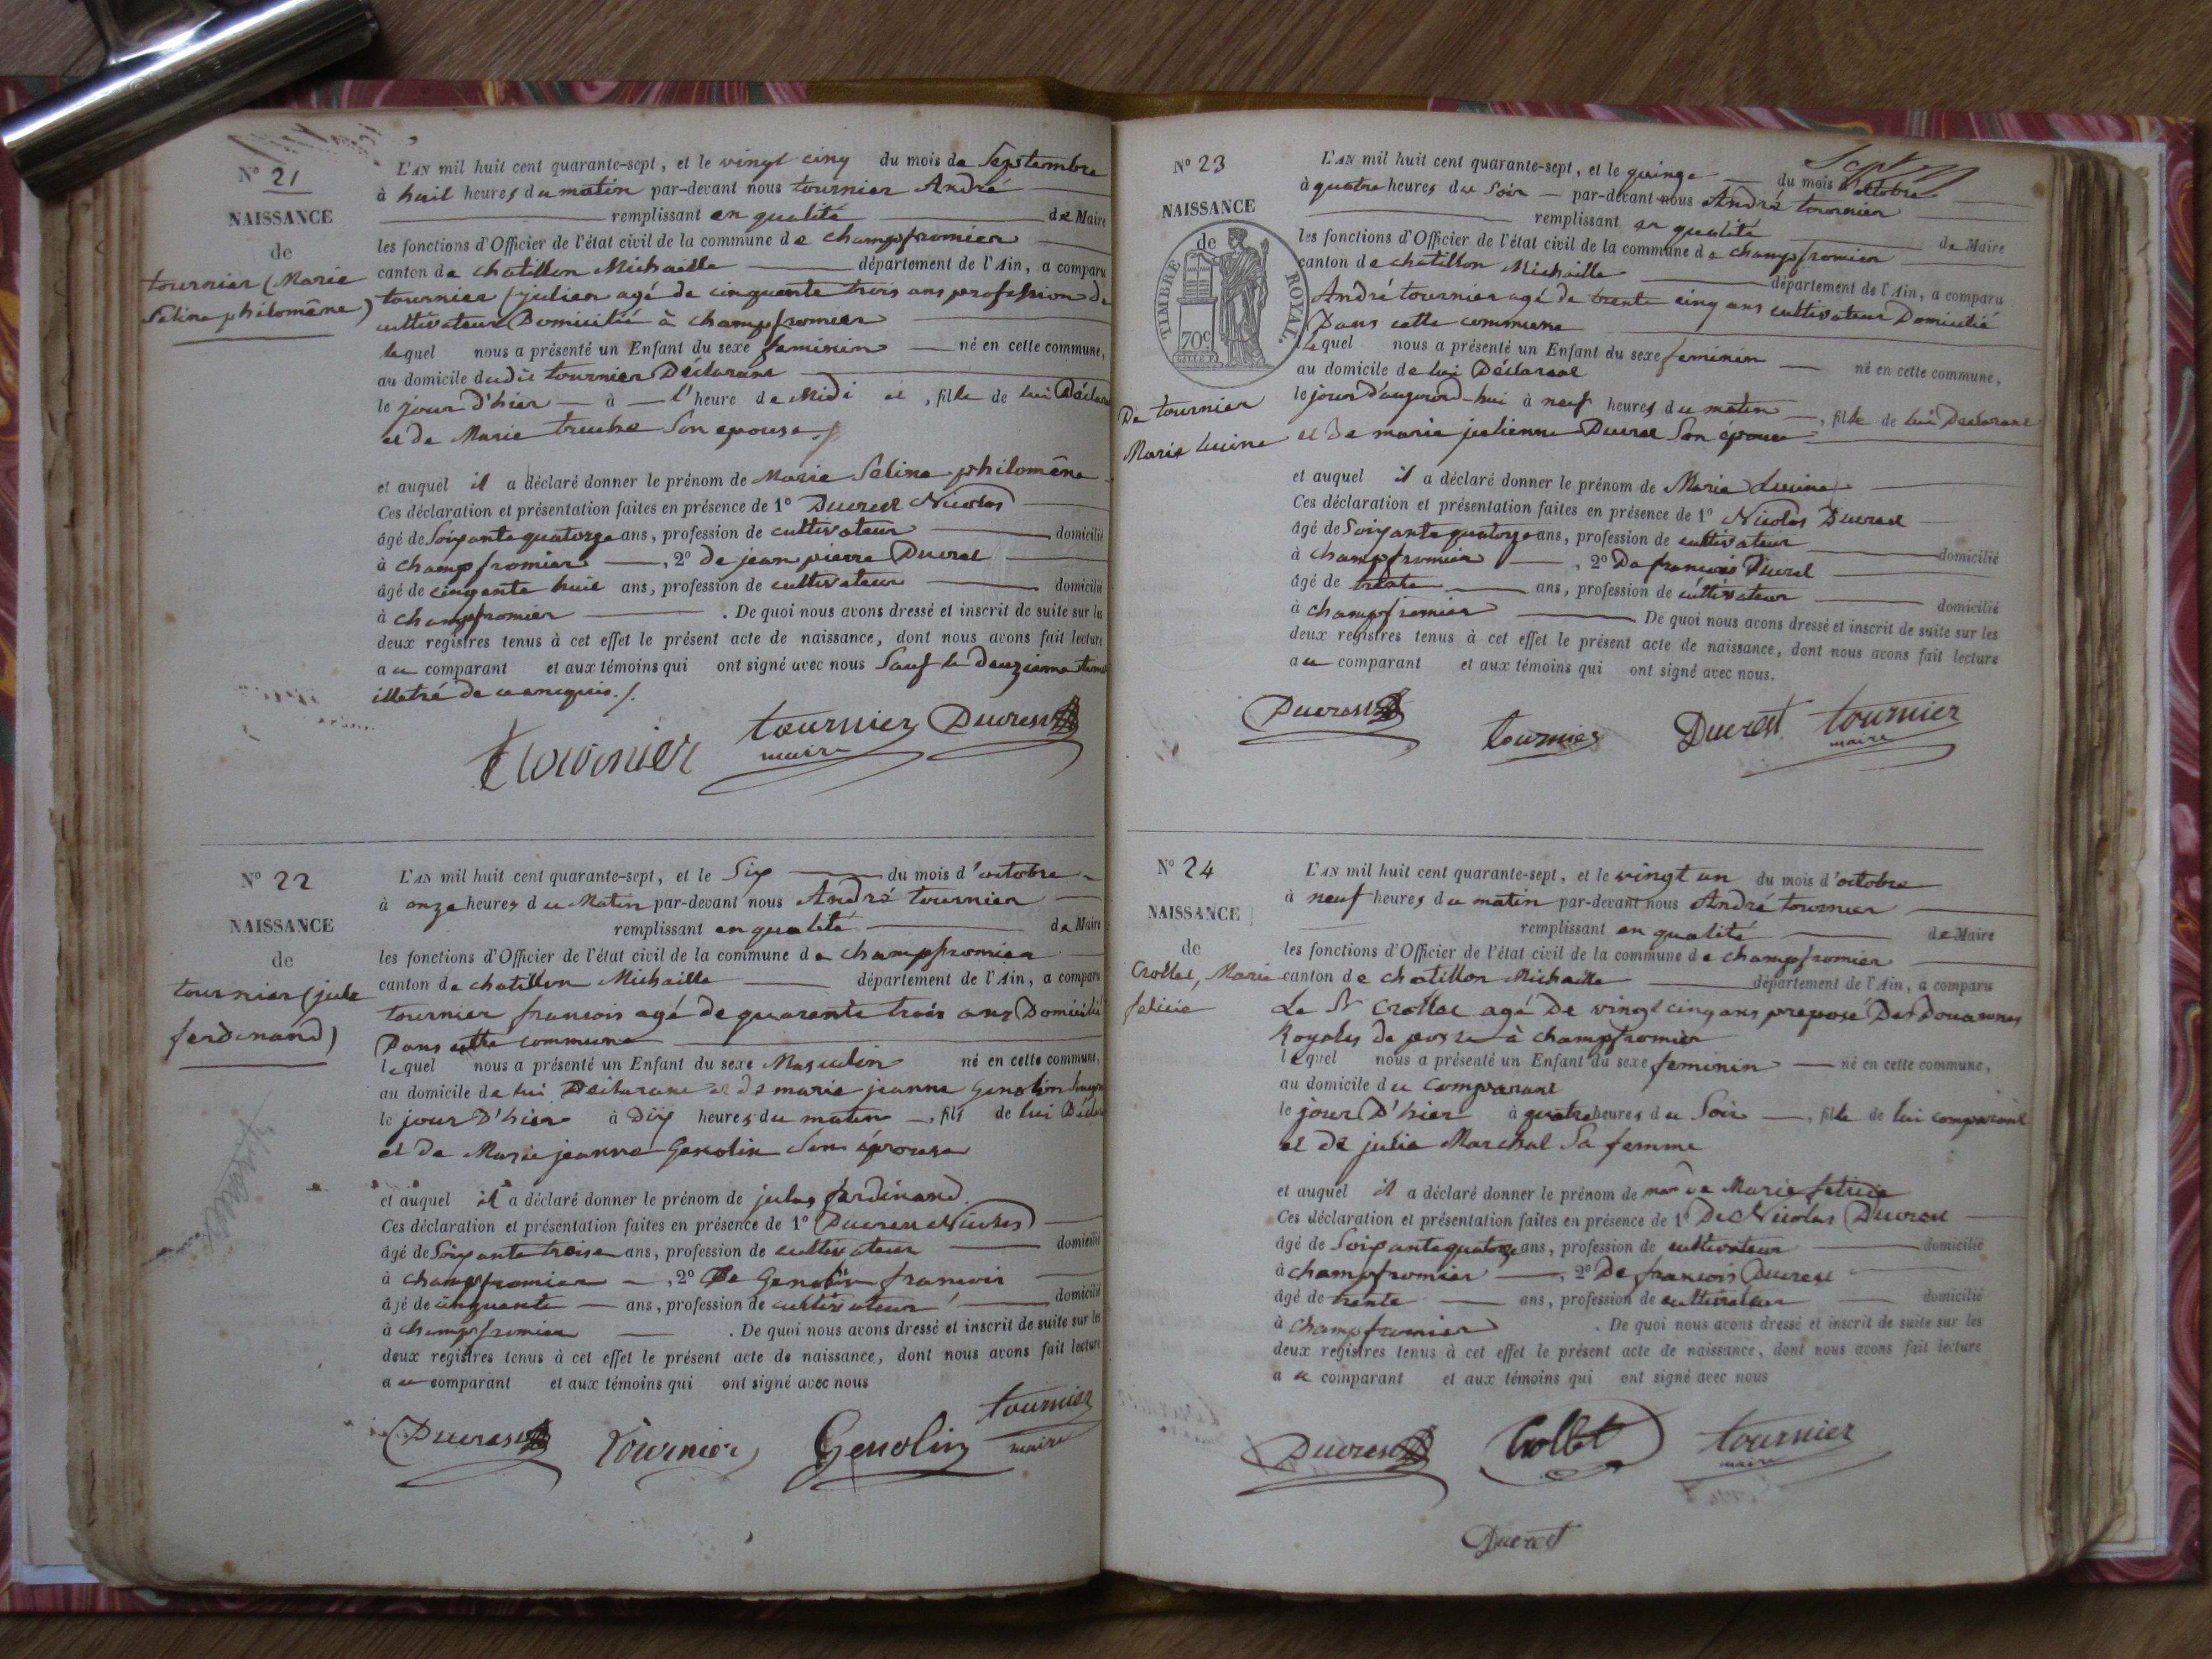 N° 21
NAISSANCE
de
tournier (Marie
Séline philomène)
L'AN mil huit cent quarante-sept, et le vingt cinq du mois de Septembre
à huit heures du matin par-devant nous tournier André
remplissant en qualité de Maire
les fonctions d'Officier de l'état civil de la commune de champfromier
canton de chatillon Michaille département de l'Ain, a comparu
tournier julien agé de cinquente trois ans profession de
cultivateur Domicilié à champfromier
lequel nous a présenté un Enfant du sexe feminin né en cette commune,
au domicile dudit tournier Déclarant
le jour d'hier à l'heure de Midi et, fille de lui
et de Marie truche Son epouse
et auquel il a déclaré donner le prénom de Marie Séline philomène
Ces déclaration et présentation faites en présence de 1° Ducret Nicolas
âgé de Soixante quatorze ans, profession de cultivateur domicilié
à champfromier, 2° de jean pierre Ducret
âgé de cinquante huit ans, profession de cultivateur domicilié
à champfromier. De quoi nous avons dressé et inscrit de suite sur la
deux registres tenus à cet effet le présent acte de naissance, dont nous avons fait lecture
au comparant et aux témoins qui ont signé avec nous Sauf le deuxieme
illetré de ce enequis./.
tournier
tournier
maire
Ducrest
N° 22
NAISSANCE
de
tournier (jule
ferdinand)
L'AN mil huit cent quarante-sept, et le Six du mois d'octobre
à onze heures du Matin par-devant nous André tournier
remplissant en qualité de Maire
les fonctions d'Officier de l'état civil de la commune de champfromier
canton de chatillon Michaille département de l'Ain, a comparu
tournier francois agé de quarente trois ans Domicilié
Dans cette commune
lequel nous a présenté un Enfant du sexe Masculin né en cette commune,
au domicile de lui Déclarant et de marie jeanne Genolin
le jour D'hier à Dix heures du matin, fils de lui
et de Marie jeanne Genolin Son épouse
et auquel il a déclaré donner le prénom de jules ferdinand
Ces déclaration et présentation faites en présence de 1° Ducret Nicolas
âgé de Soixante treise ans, profession de cultivateur domicilié
à champfromier, 2° De Genolin francois
âgé de cinquante ans, profession de cultivateur domicilié
à champfromier. De quoi nous avons dressé et inscrit de suite sur les
deux registres tenus à cet effet le présent acte de naissance, dont nous avons fait lecture
au comparant et aux témoins qui ont signé avec nous
Ducrest
tournier
Genolin
tournier
maire
N° 23
NAISSANCE
de
TIMBRE ROYAL
70c
De tournier
Marie lucine
L'AN mil huit cent quarante-sept, et le quinze du mois d'octobre
à quatre heures du Soir par-devant nous André tournier
remplissant en qualité de Maire
les fonctions d'Officier de l'état civil de la commune de champfromier
canton de chatillon Michaille département de l'Ain, a comparu
André tournier agé de trente cinq ans cultivateur Domicilié
Dans cette commune
lequel nous a présenté un Enfant du sexe feminin né en cette commune,
au domicile de lui Déclarant
le jour d'aujourd-hui à neuf heures du matin, fille de lui Declarant
et de marie julienne Ducret Son épouse
et auquel il a déclaré donner le prénom de Marie Lucine
Ces déclaration et présentation faites en présence de 1° Nicolas Ducret
âgé de Soixante quatorze ans, profession de cultivateur domicilié
à champfromier, 2° De francois Ducret
âgé de trente ans, profession de cultivateur domicilié
à champfromier De quoi nous avons dressé et inscrit de suite sur les
deux registres tenus à cet effet le présent acte de naissance, dont nous avons fait lecture
au comparant et aux témoins qui ont signé avec nous.
Ducrest
tournier
Ducrest
tournier
maire
N° 24
NAISSANCE
de
Crollet, Marie
felicie
L'AN mil huit cent quarante-sept, et le vingt un du mois d'octobre
à neuf heures du matin par-devant nous André tournier
remplissant en qualité de Maire
les fonctions d'Officier de l'état civil de la commune de champfromier
canton de chatillon Michaille département de l'Ain, a comparu
Le Sr Crollet agé De vingt cinq ans preposé Des Douannes
Royales de poste à champfromier
lequel nous a présenté un Enfant du sexe feminin né en cette commune,
au domicile du Comparant
le jour D'hier à quatre heures du Soir, fille de lui comparant
et de julie Marchal Sa femme
et auquel il a déclaré donner le prénom de Marie felicie
Ces déclaration et présentation faites en présence de 1° De Nicolas Ducret
âgé de Soixante quatorze ans, profession de cultivateur domicilié
à champfromier, 2° De francois Ducret
âgé de trente ans, profession de cultivateur domicilié
à champfromier. De quoi nous avons dressé et inscrit de suite sur les
deux registres tenus à cet effet le présent acte de naissance, dont nous avons fait lecture
au comparant et aux témoins qui ont signé avec nous
Ducrest
Crollet
tournier
maire
Ducrest